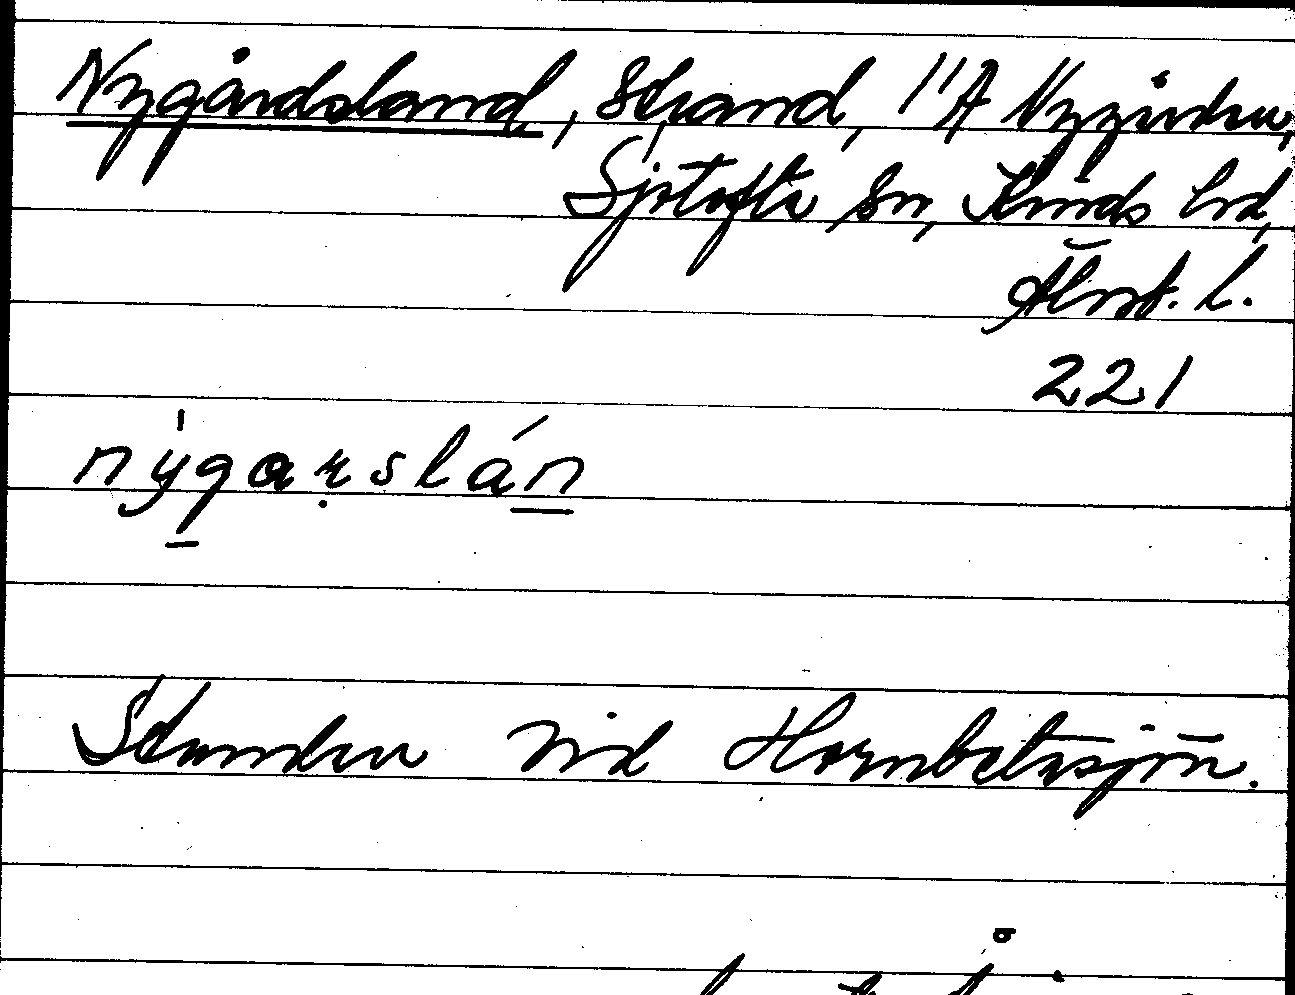 Nygårdsland, Strand, 1/1 A Nygården,
Sjötofta sn, Kinds hrd,
Älvsb. l.
221
nýgarslán
Stranden vid Hornbetasjön.